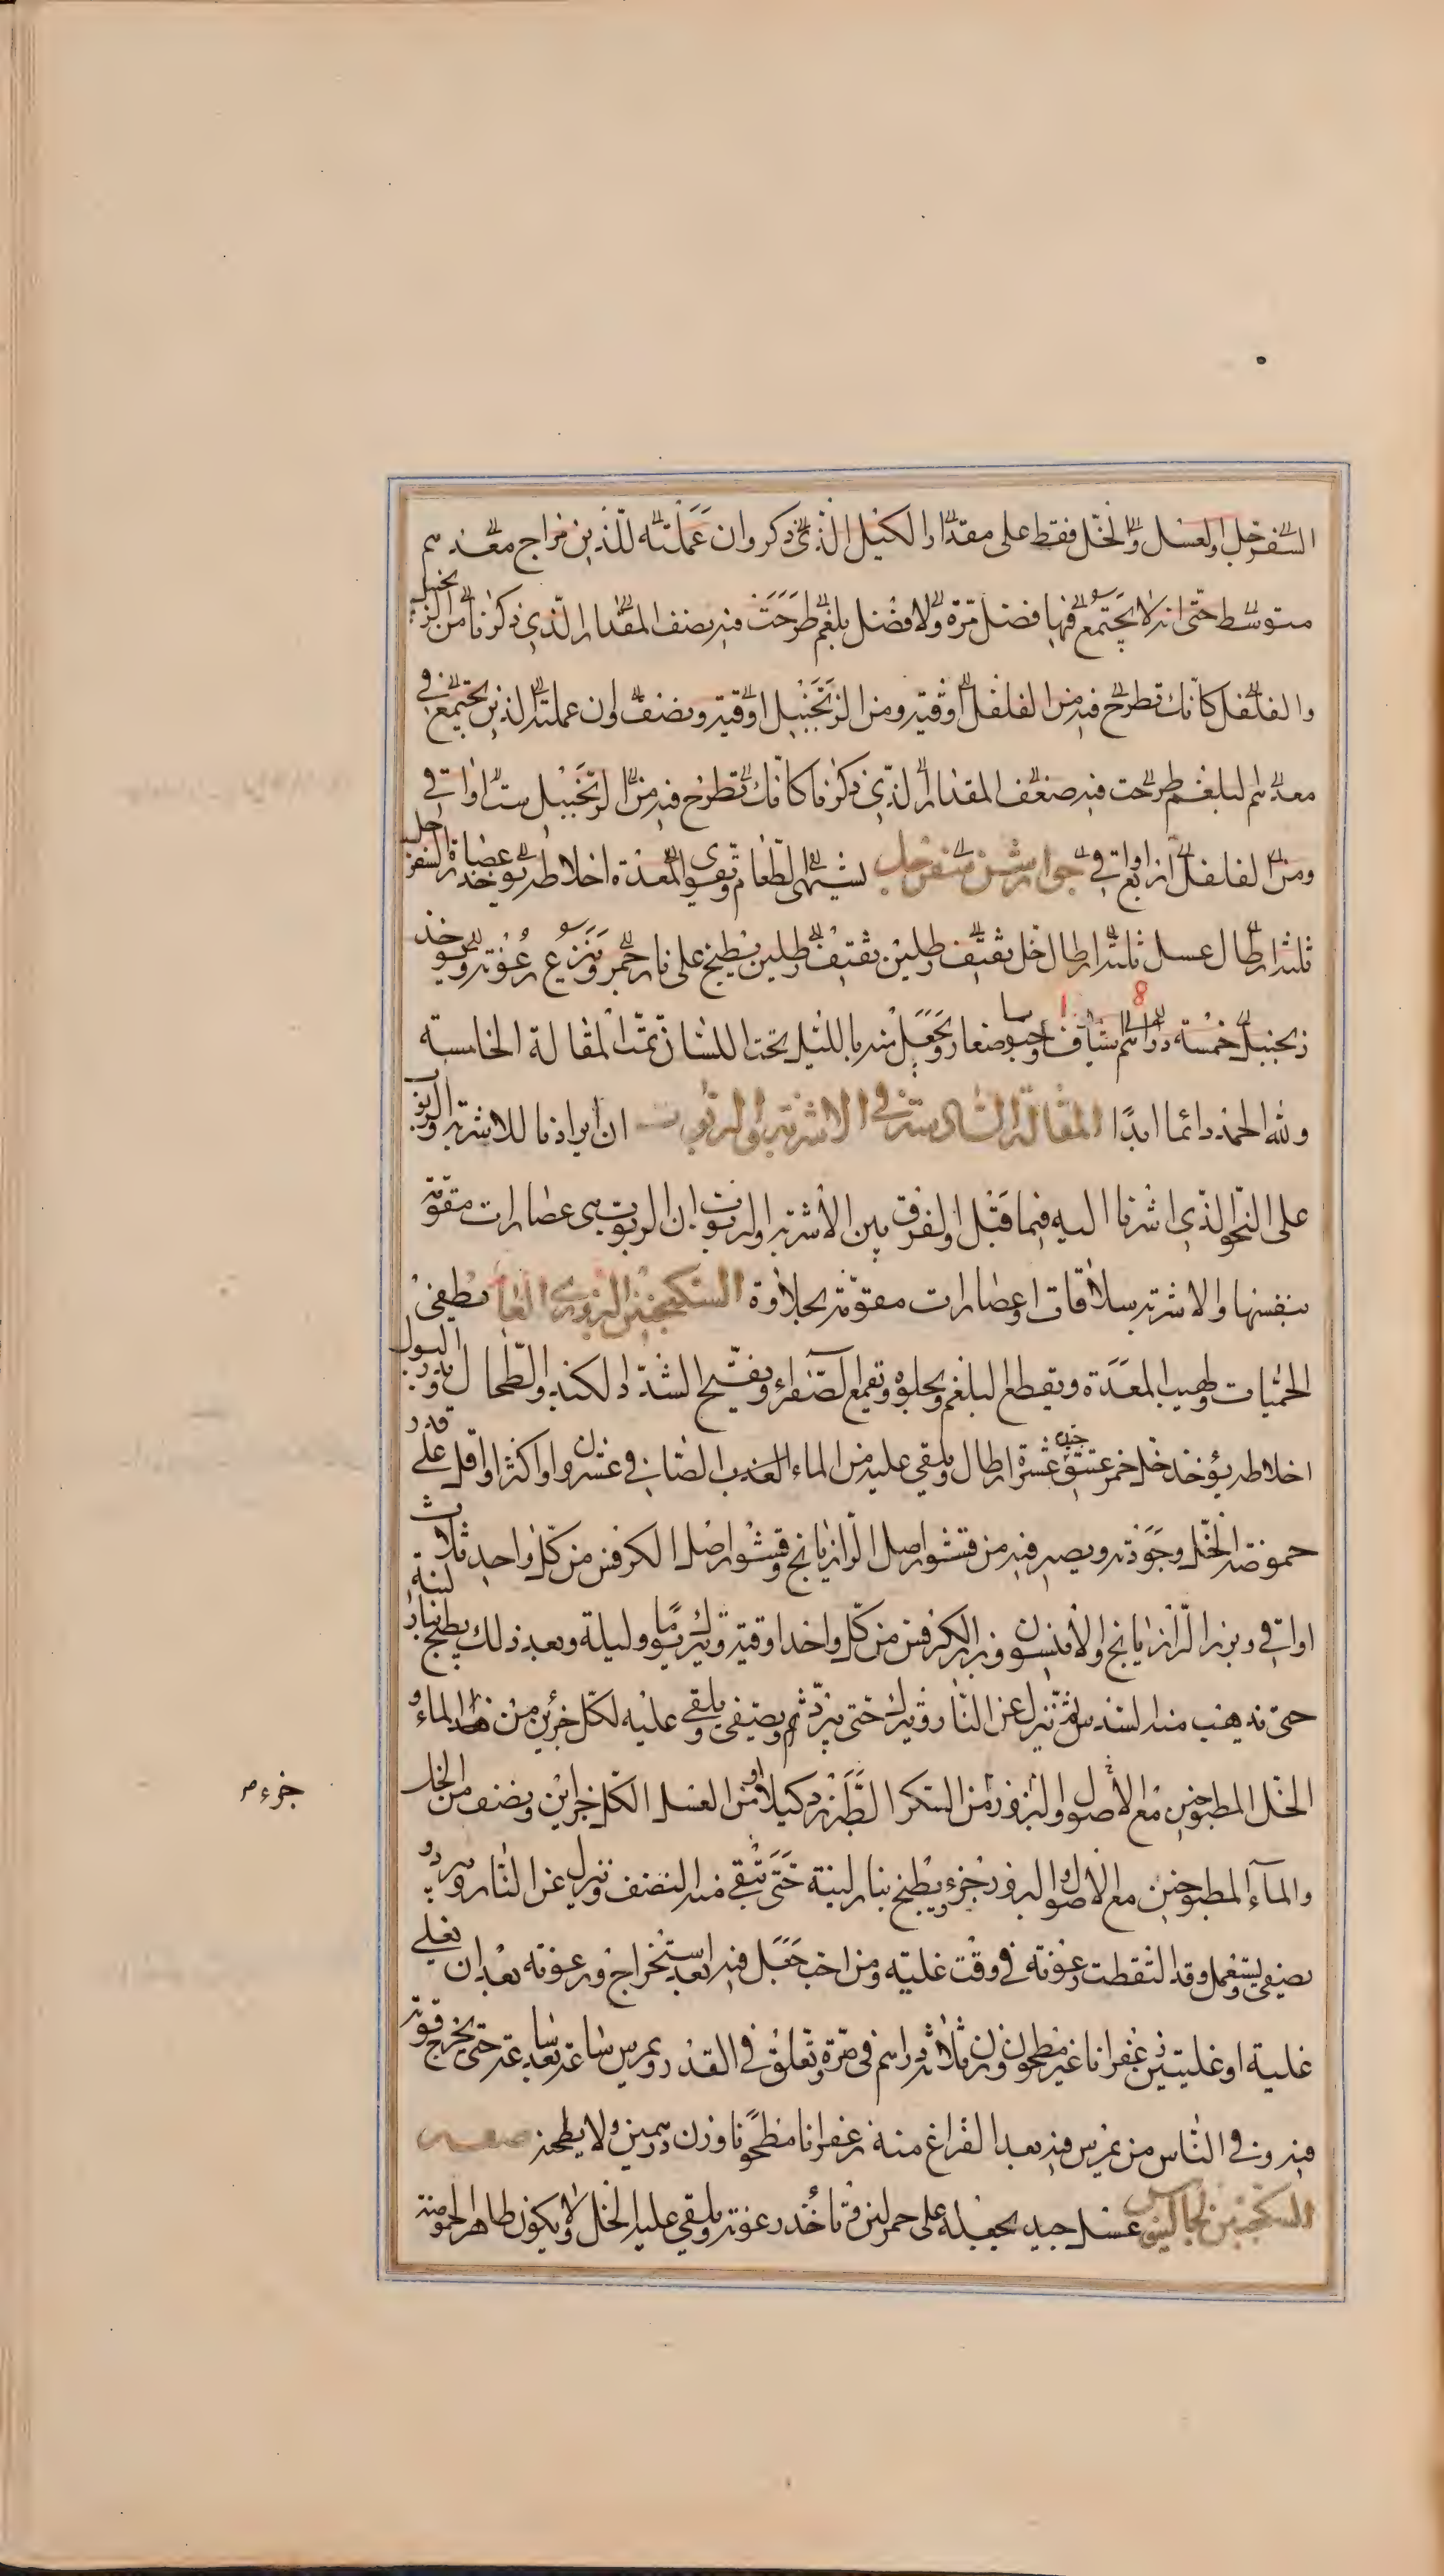 السفرجل والعسل والخل فقط على مقدار الكيل الذي ذكر وان عملته للذين مزاج معدهم
متوسط حتى انه لا يجتمع فيها فضل مرة ولا فضل بلغم طرحت فيه نصف المقدار الذي ذكرنا من الزنجبيل
والفلفل كانك تطرح فيه من الفلفل اوقية ومن الزنجبيل اوقية ونصف وان عملته للذين يجتمع في
معدهم البلغم طرحت فيه ضعف المقدار الذي ذكرنا كانك تطرح فيه من الزنجبيل ست اواقي
ومن الفلفل اربع اواقي جوارشن سفرجل يشهي الطعام ويقوي المعدة اخلاطه يؤخذ عصارة السفرجل
ثلثة ارطال عسل ثلثة ارطال خل ثقيف رطلين يطبخ على نار جمر وينزع رغوته ويؤخذ
زنجبيل خمسة دراهم شياف وحبا صغار ويجعل منه بالليل تحت اللسان تمت المقالة الخامسة
ولله الحمد دائما ابدا المقالة السادسة في الاشربة والربوب ان ايرادنا للاشربة والربوب
على النحو الذي اشرنا اليه فيما قبل والفرق بين الاشربة والربوب ان الربوب هي عصارات مقومة
بنفسها والاشربة سلاقات وعصارات مقومة بحلاوة السكنجبين البزوري العام يطفئ
الحميات ولهيب المعدة ويقطع البلغم ويجلوه ويقمع الصفراء ويفتح السدد الكبد والطحال ويدر البول
اخلاطه يؤخذ خل خمر عتيق جيد عشرة ارطال ويلقى عليه من الماء العذب الصافي عشرون او اكثر او اقل على قدر
حموضة الخل وجودته ويصير فيه من قشور اصل الرازيانج وقشور اصل الكرفس من كل واحد ثلاث
اواقي وبزر الرازيانج والانيسون وبزر الكرفس من كل واحد اوقية ويترك يوما وليلة وبعد ذلك يطبخ بنار لينة
حتى يذهب منه السدس ثم ينزل عن النار ويترك حتى يبرد ثم ويصفى ويلقى عليه لكل جزئين من هذا الماء و
الخل المطبوخين مع الاصول والبزور من السكر الطبرزد كيلا او من العسل الكل جزاين ونصف من الخل
جزء م
والماء المطبوخين مع الاصول والبزور جزء ويطبخ بنار لينة حتى يبقى منه النصف وينزل عن النار ويبرد و
يصفى ويستعمل وقد التقطت رغوته في وقت غليه ومن احب جعل فيه بعد استخراج رغوته بعد ان يغلي
غلية او غليتين زعفرانا غير مطحون وزن ثلاثة دراهم في صرة وتعلق في القدر ويمرس ساعة بعد ساعة حتى يخرج قوته
فيه وفي الناس من يمرس فيه بعد الفراغ منه زعفرانا مطحونا وزن درهمين ولا يطحنه صفة
السكنجبين لجالينوس عسل جيد يجعله على جمر لين وتاخذ رغوته ويلقي عليه الخل ولا يكون ظاهر الحموضة